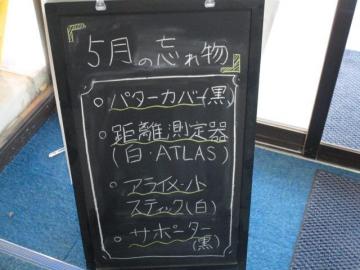 5月の忘れ物
○パターカバー(黒)
○距離測定器
(白・ATLAS)
○アライメント
スティック(白)
○サポーター
(黒)